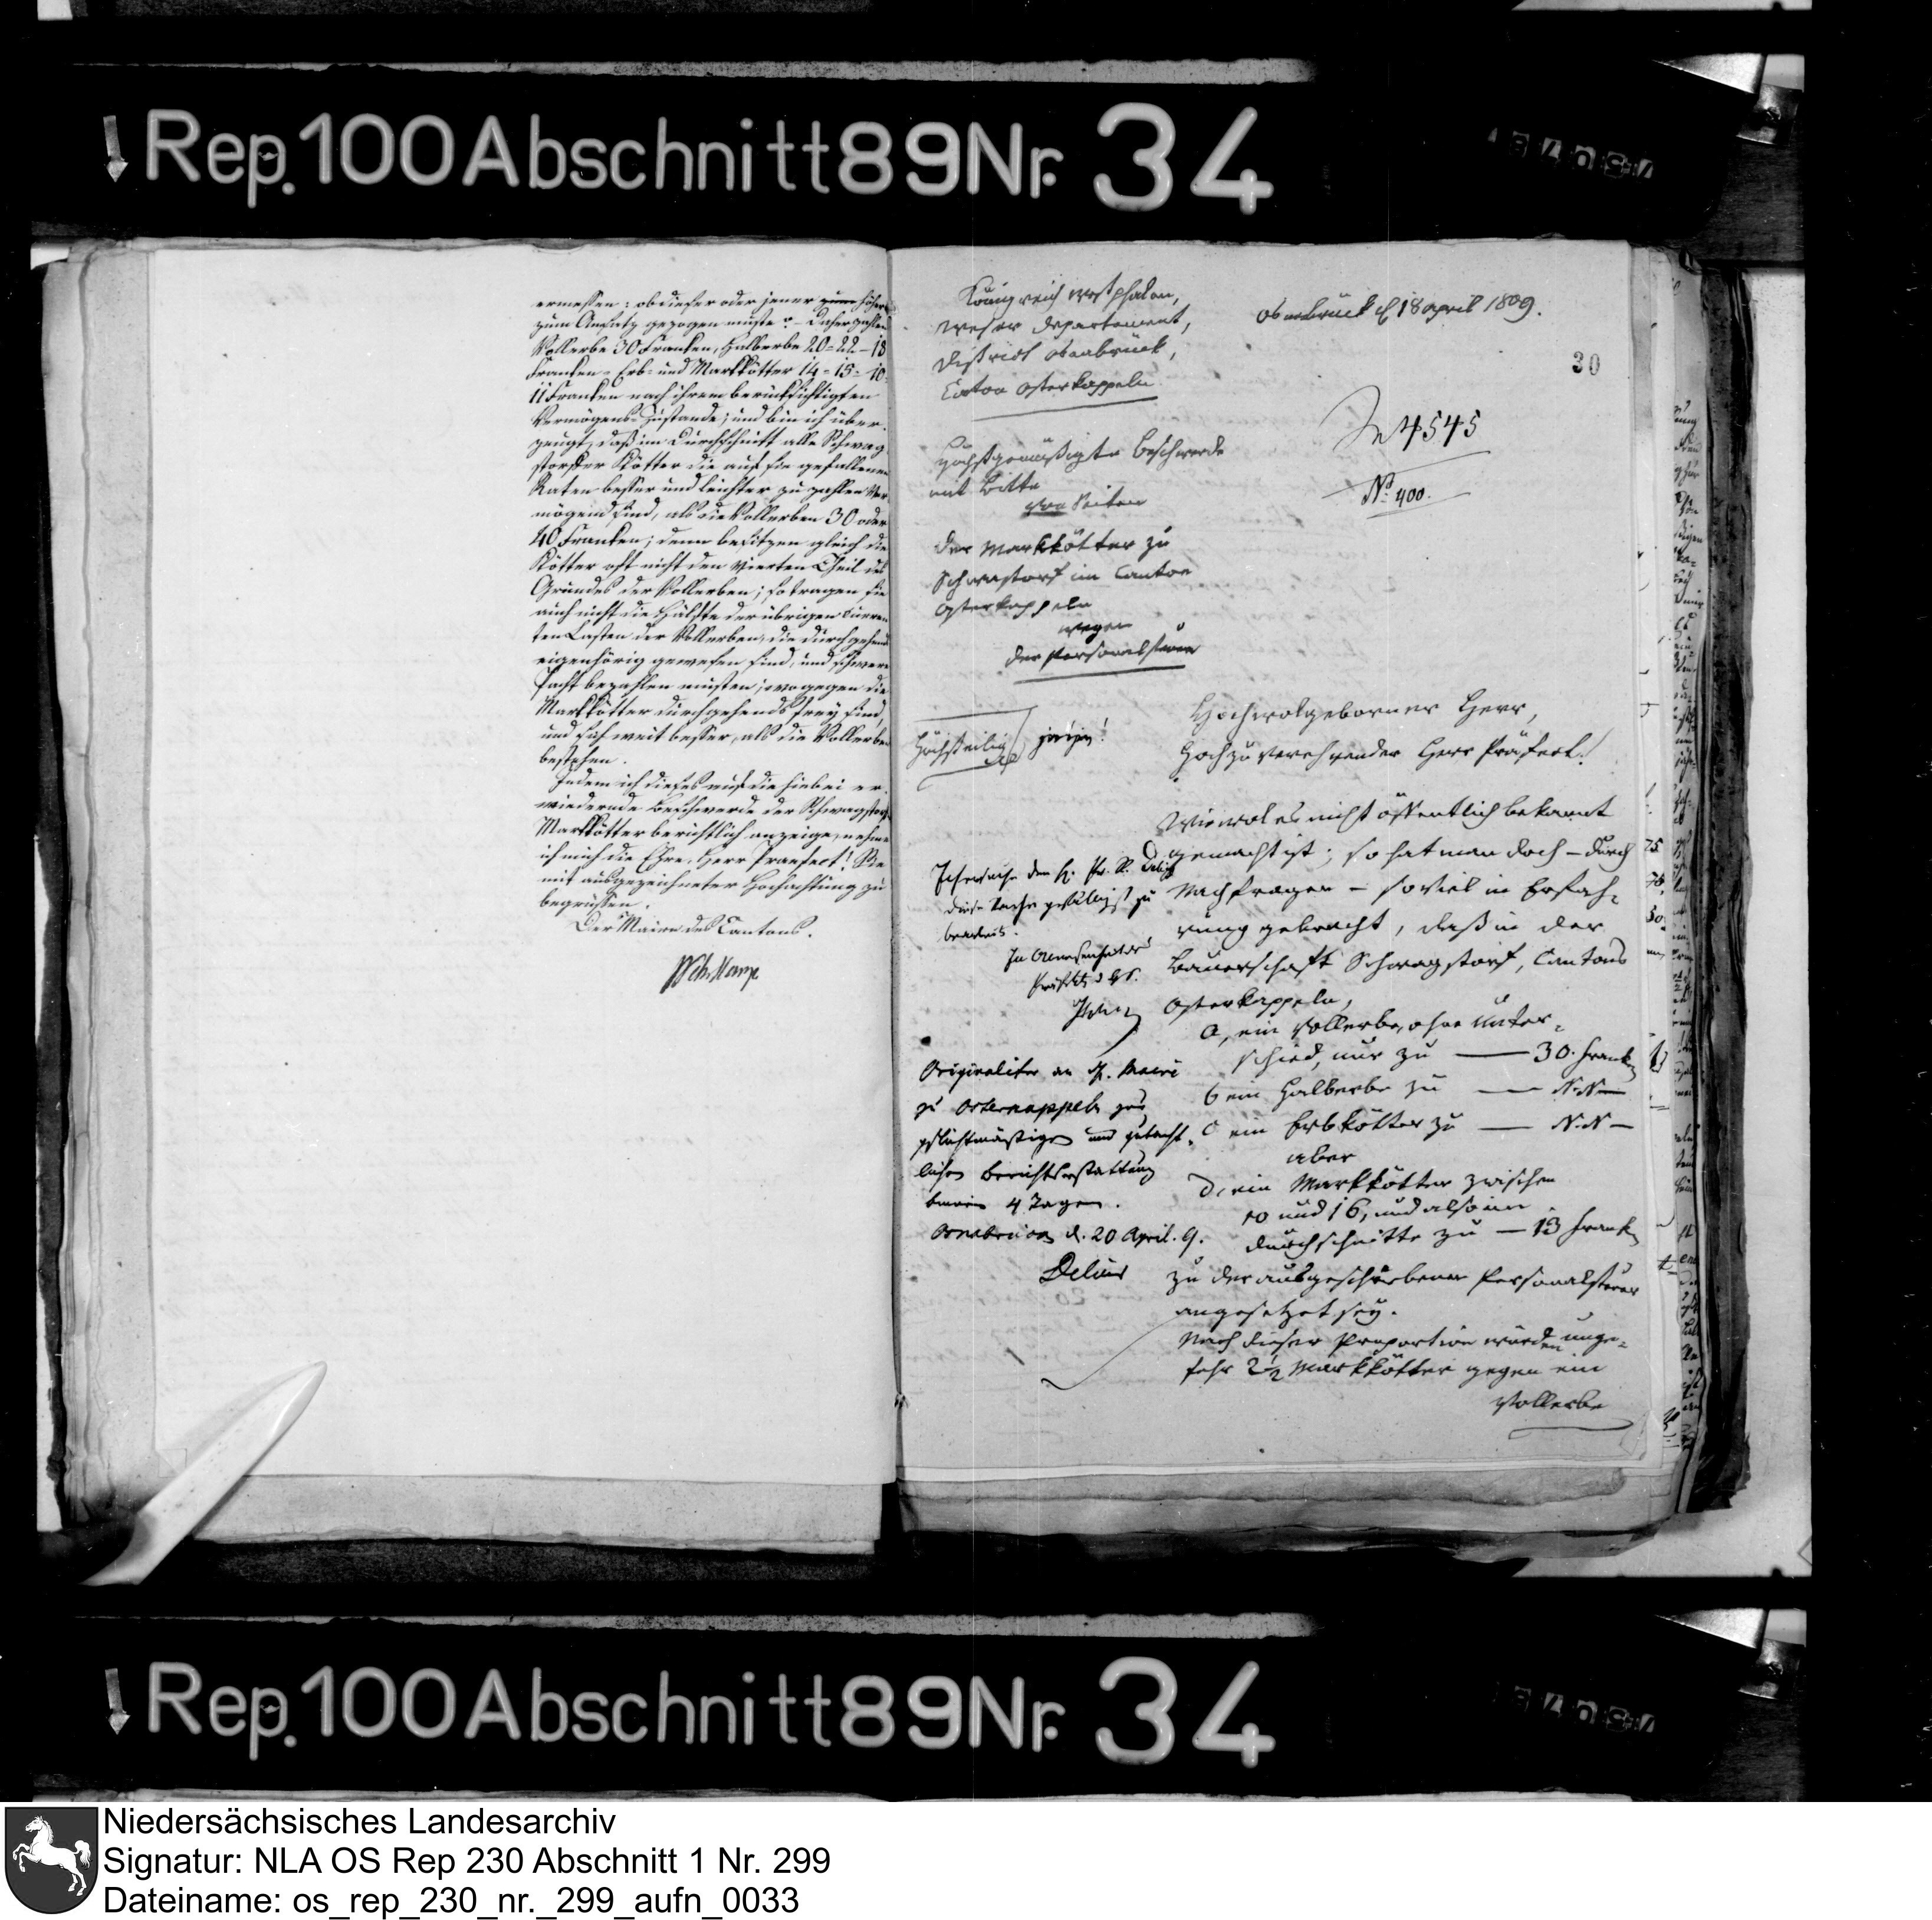 Rep. 100 Abschnitt 89 Nr. 34
ermessen: ob dieser oder jener zum höhern
zum Ansatz gezogen muste? – Daher zahlen
Vollerbe 30 Franken, Halberbe 20 = 22 – 18
Franken – Erb- und Markkötter 14 = 15 = 10 =
11 Franken nach ihrem berücksichtigten
Vermögens-Zustande; und bin ich über-
zeugt, daß im Durchschnitt alle Schwag-
storfer Kötter die auf sie gefallenen
Raten besser und leichter zu zahlen ver-
mögend sind, als die Vollerben 30 oder
40 Franken; denn besitzen gleich die
Kötter oft nicht den vierten Theil des
Grundes der Vollerben; so tragen sie
auch nicht die Hälfte der übrigen
ten Lasten der Vollerben, die durchgehends
eigenhörig gewesen sind, und schwere
Pacht bezahlen musten; wogegen die
Markkötter durchgehends frey sind,
und sich weit besser, als die Vollerben
bestehen.
Indem ich dieses auf die hiebei er-
wiedernde Beschwerde der Schwagstorfer
Markkötter berichtlich anzeige, nehme
ich mir die Ehre, Herr Praefect! Sie
mit ausgezeichneter Hochachtung zu
begrüssen.
Der Maire des Cantons.
Königreich Westphalen,
Weser Departement,
District Osnabrück,
Canton Osterkappeln
Osnabrück d 18 april 1809.
30
4545
No. 400.
höchstgemüßigte Beschwerde
mit Bitte
von Seiten
der Markkötter zu
Schwagstorf im Canton
Osterkappeln
wegen
der Personalsteuer
Hochwolgeborner Herr,
Hochzuverehrender Herr Präfect!
Wiewol es nicht öffentlich bekant
gemacht ist; so hat man doch – durch
Nachfragen – soviel in Erfah-
rung gebracht, daß in der
Bauerschaft Schwagstorf, Cantons
Osterkappeln,
a, ein Vollerbe, ohne Unter-
schied, nur zu — 30. Franken
b ein Halberbe zu — N.N —
c ein Erbkötter zu — N.N —
aber
d, ein Markkötter zwischen
10 und 16, und also im
durchschnitte zu — 13 Franken
zu der ausgeschriebenen Personalsteuer
angesetzet sey.
Nach dieser Proportion würden unge-
fehr 2 1/2 Markkötter gegen ein
Vollerbe
Ich ersuche den H. Pr. R.
diese Sache gefälligst zu
bearbeiten.
In Abwesenheit des
Präfekts
Originaliter an H. Maire
zu Osterkappeln zur
pflichtmäßigen und gutacht-
lichen Berichtserstattung
binnen 4 Tagen.
Osnabrück d. 20 April. 9.
Delius
Rep. 100 Abschnitt 89 Nr. 34
Niedersächsisches Landesarchiv
Signatur: NLA OS Rep 230 Abschnitt 1 Nr. 299
Dateiname: os_rep_230_nr._299_aufn_0033